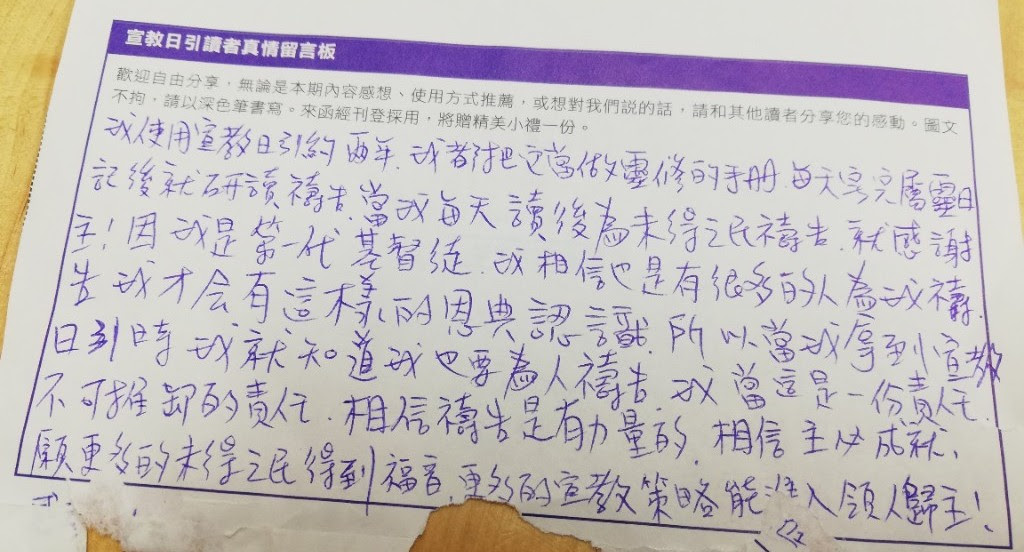 宣教日引讀者真情留言板
歡迎自由分享，無論是本期內容感想、使用方式推薦，或想對我們說的話，請和其他讀者分享您的感動。圖文
不拘，請以深色筆書寫。來函經刊登採用，將贈精美小禮一份。
我使用宣教日引約兩年.我都把它當做靈修的手册.每天寫完屬靈日
記後就研讀禱告.當我每天讀後為未得之民禱告.就感謝
主!因我是第一代基督徒.我相信也是有很多的人為我禱
告我才会有這樣的恩典認識.所以當我拿到宣教
日引時我就知道我也要為人禱告.我當這是一份責任.
不可推卸的責任.相信禱告是有力量的.相信主必成就.
願更多的未得之民得到福音.更多的宣教策略能進入領人歸主!